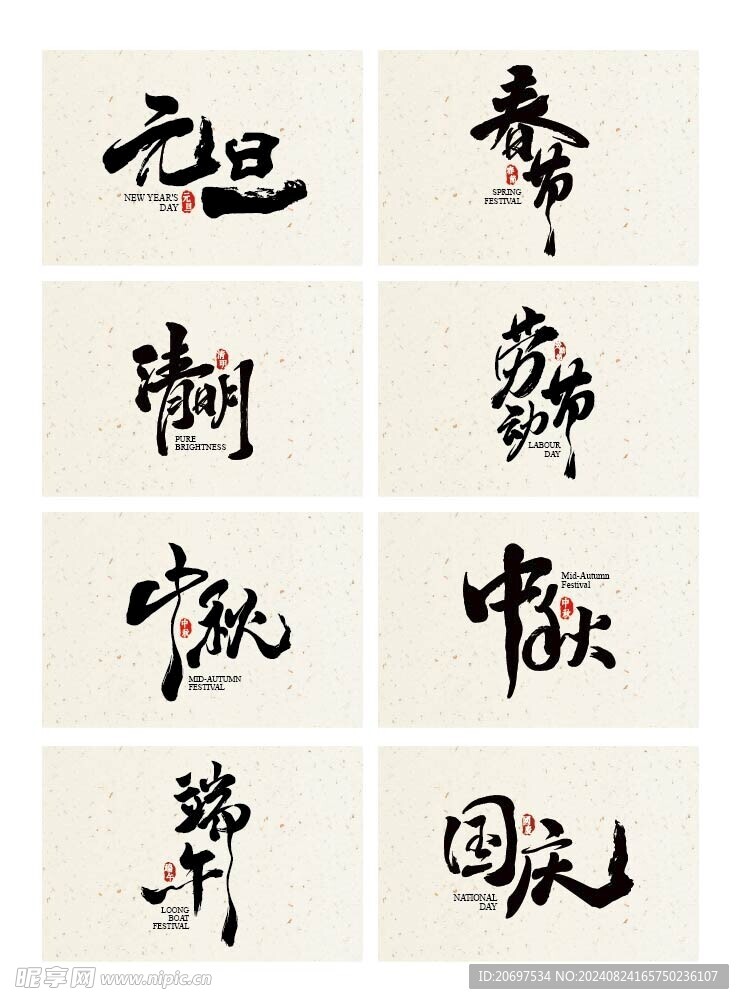 元旦
NEW YEAR'S
DAY
元旦
春节
春节
SPRING
FESTIVAL
清明
清明
PURE
BRIGHTNESS
劳动节
LABOUR
DAY
中秋
中秋
MID-AUTUMN
FESTIVAL
中秋
Mid-Autumn
Festival
中秋
端午
端午
LOONG
BOAT
FESTIVAL
国庆
NATIONAL
DAY
昵享网 www.nipic.cn
ID:20697534 NO:20240824165750236107